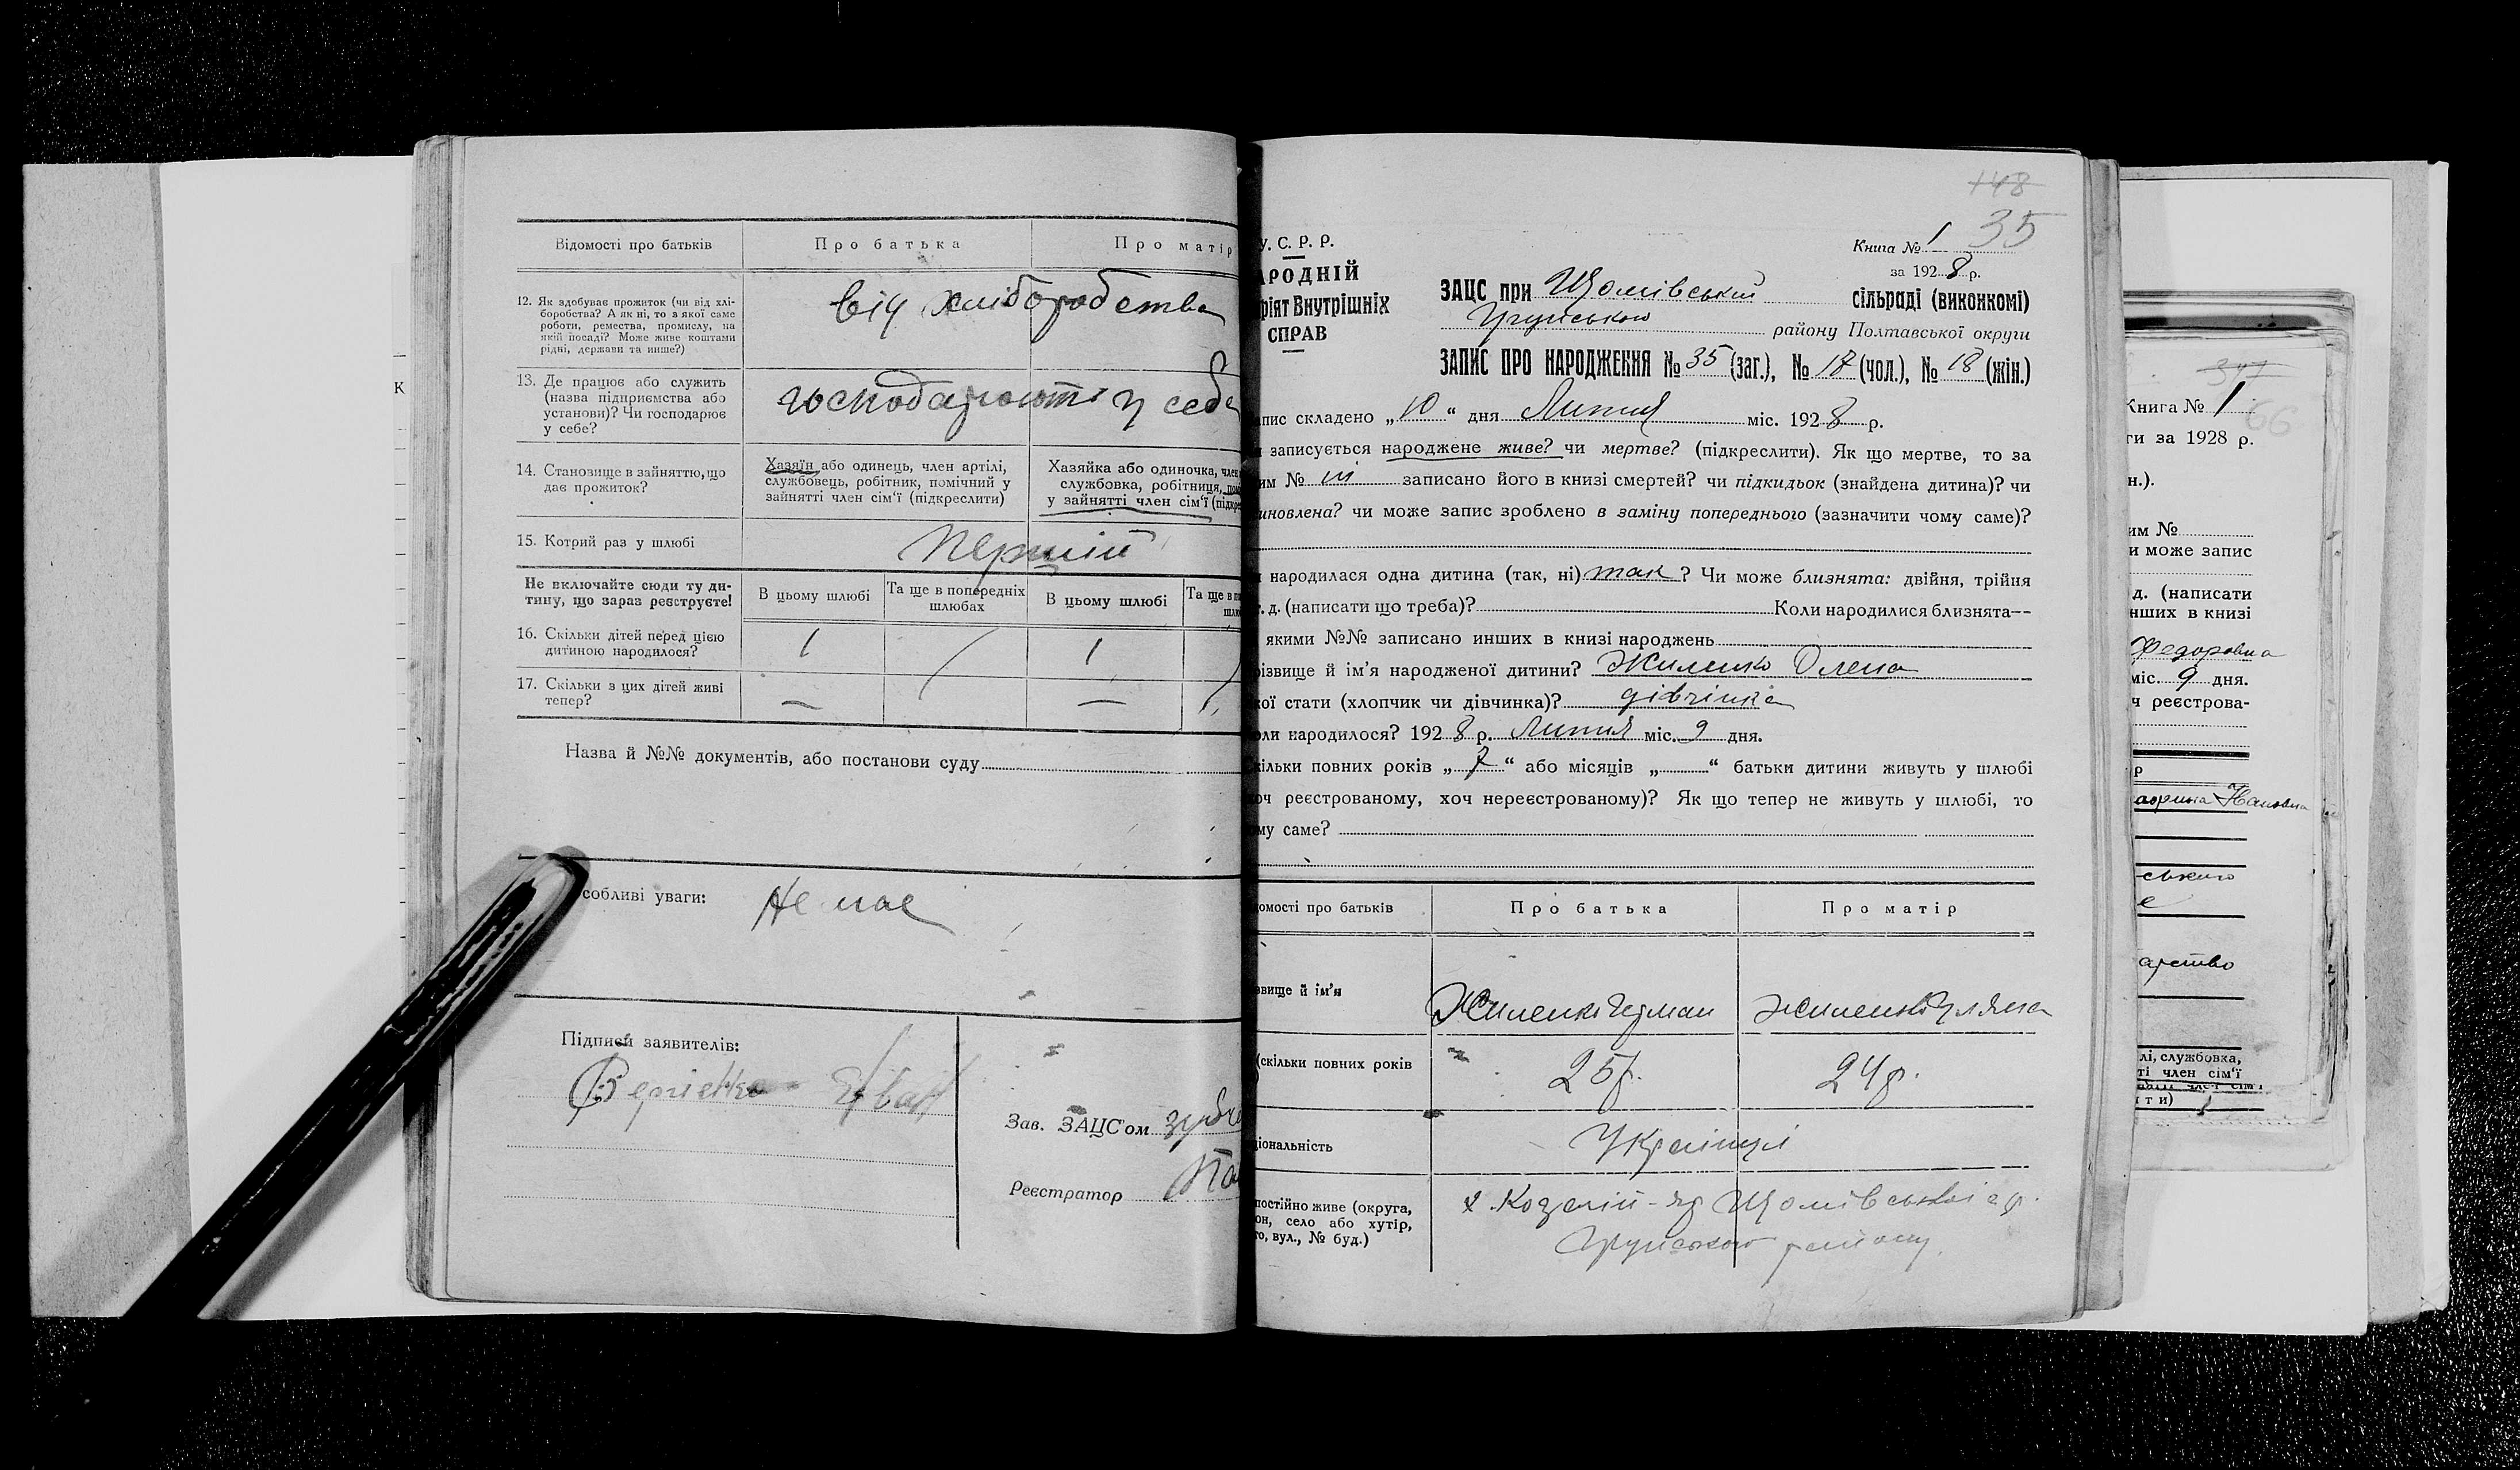 Відомості про батьків
Про батька
Про матір
12. Як здобуває прожиток (чи від хлі-
боробства? А як ні, то з якої саме
роботи, ремества, промислу, на
якій посаді? Може живе коштами
рідні, держави та инше?)
від хліборобства
13. Де працює або служить
(назва підприємства або
установи)? Чи господарює
у себе?
господарюють у себе
14. Становище в зайняттю, що
дає прожиток?
Хазяїн або одинець, член артілі,
службовець, робітник, помічний у
зайнятті член сім'ї (підкреслити)
Хазяйка або одиночка, член
службовка, робітниця, пом
у зайнятті член сім'ї (підкре
15. Котрий раз у шлюбі
Перший
Не включайте сюди ту ди-
тину, що зараз реєструєте!
В цьому шлюбі
Та ще в попередніх
шлюбах
В цьому шлюбі
Та ще в по
шлю
16. Скільки дітей перед цією
дитиною народилося?
1 / 1 /
17. Скільки з цих дітей живі
тепер?
— —
Назва й №№ документів, або постанови суду
собливі уваги: Не має
Підписи заявителів:
Зав. ЗАЦС'ом
Реєстратор
148
35
У. С. Р. Р.
АРОДНІЙ
ріят Внутрішніх
СПРАВ
Книга № 1
за 1928 р.
ЗАЦС при Шомівський сільраді (виконкомі)
Грунського району Полтавської округи
ЗАПИС ПРО НАРОДЖЕННЯ № 35 (заг.), № 17 (чол.), № 18 (жін.)
апис складено „10“ дня Липня міс. 1928 р.
записується народжене живе? чи мертве? (підкреслити). Як що мертве, то за
им № записано його в книзі смертей? чи підкидьок (знайдена дитина)? чи
иновлена? чи може запис зроблено в заміну попереднього (зазначити чому саме)?
народилася одна дитина (так, ні) так ? Чи може близнята: двійня, трійня
т. д. (написати що треба)? Коли народилися близнята—
якими №№ записано инших в книзі народжень
різвище й ім'я народженої дитини? Жиленко Олена
кої стати (хлопчик чи дівчинка)? дівчінка
оли народилося? 1928 р. Липня міс. 9 дня.
кільки повних років „7“ або місяців „ “ батьки дитини живуть у шлюбі
оч реєстрованому, хоч нереєстрованому)? Як що тепер не живуть у шлюбі, то
му саме?
домості про батьків
Про батька
Про матір
звище й ім'я
Жиленко Герман
Жиленко Уляна
(скільки повних років
25 р.
24 р.
ціональність
Українці
постійно живе (округа,
он, село або хутір,
го, вул., № буд.)
х. Козелій-яр Шомівської с р.
Грунського району
К
347
Книга № 1
66
ги за 1928 р.
н.).
им №
и може запис
д. (написати
нших в книзі
Федоровна
міс. 9 дня.
ч реєстрова-
р
ського
е
арство
лі, службовка,
ті член сім'ї
ити)